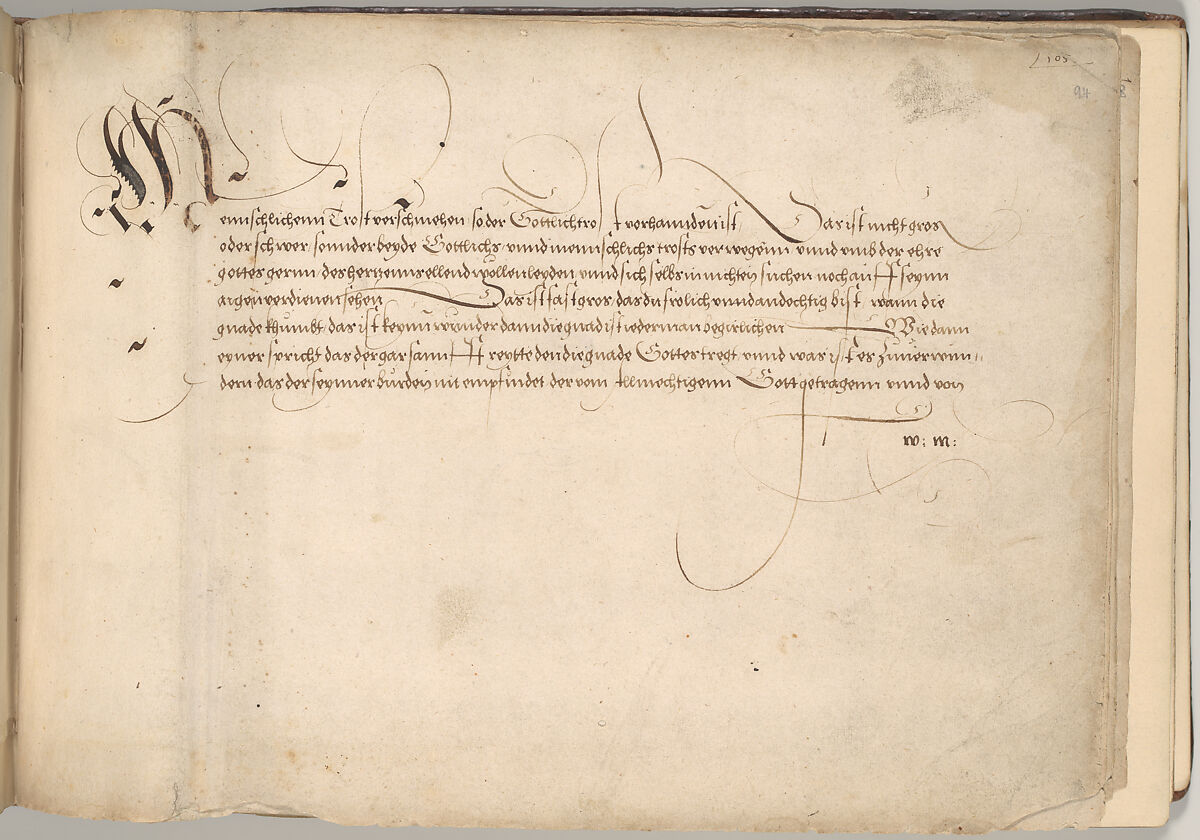 105
94 8
Mennschlichenn Trost verschmehen so der Gottlich trost vorhannden ist, Das ist nicht gros
oder schwer, sonnder beyde Gottlichs vnnd mennschlichs trosts verwegenn, vnnd vmb der ehre
gottes gernn, des hertzenns ellend wollen leyden, vnnd sich selbs in nichten suchen noch auff seynn
aigen verdienen sehen Das ist fast gros, das du frolich vnnd andechtig bist, wann die
gnade khumbt, das ist keynn wunder dann die gnad ist iederman begirlichen Wie dann
eyner spricht das der gar sannfft reytte den die gnade Gottes tregt, vnnd was ist es zuuerwun=
dern das der seynner burden nit empfindet der vom Allmechtigenn Gott getragenn vnnd von
w: m: